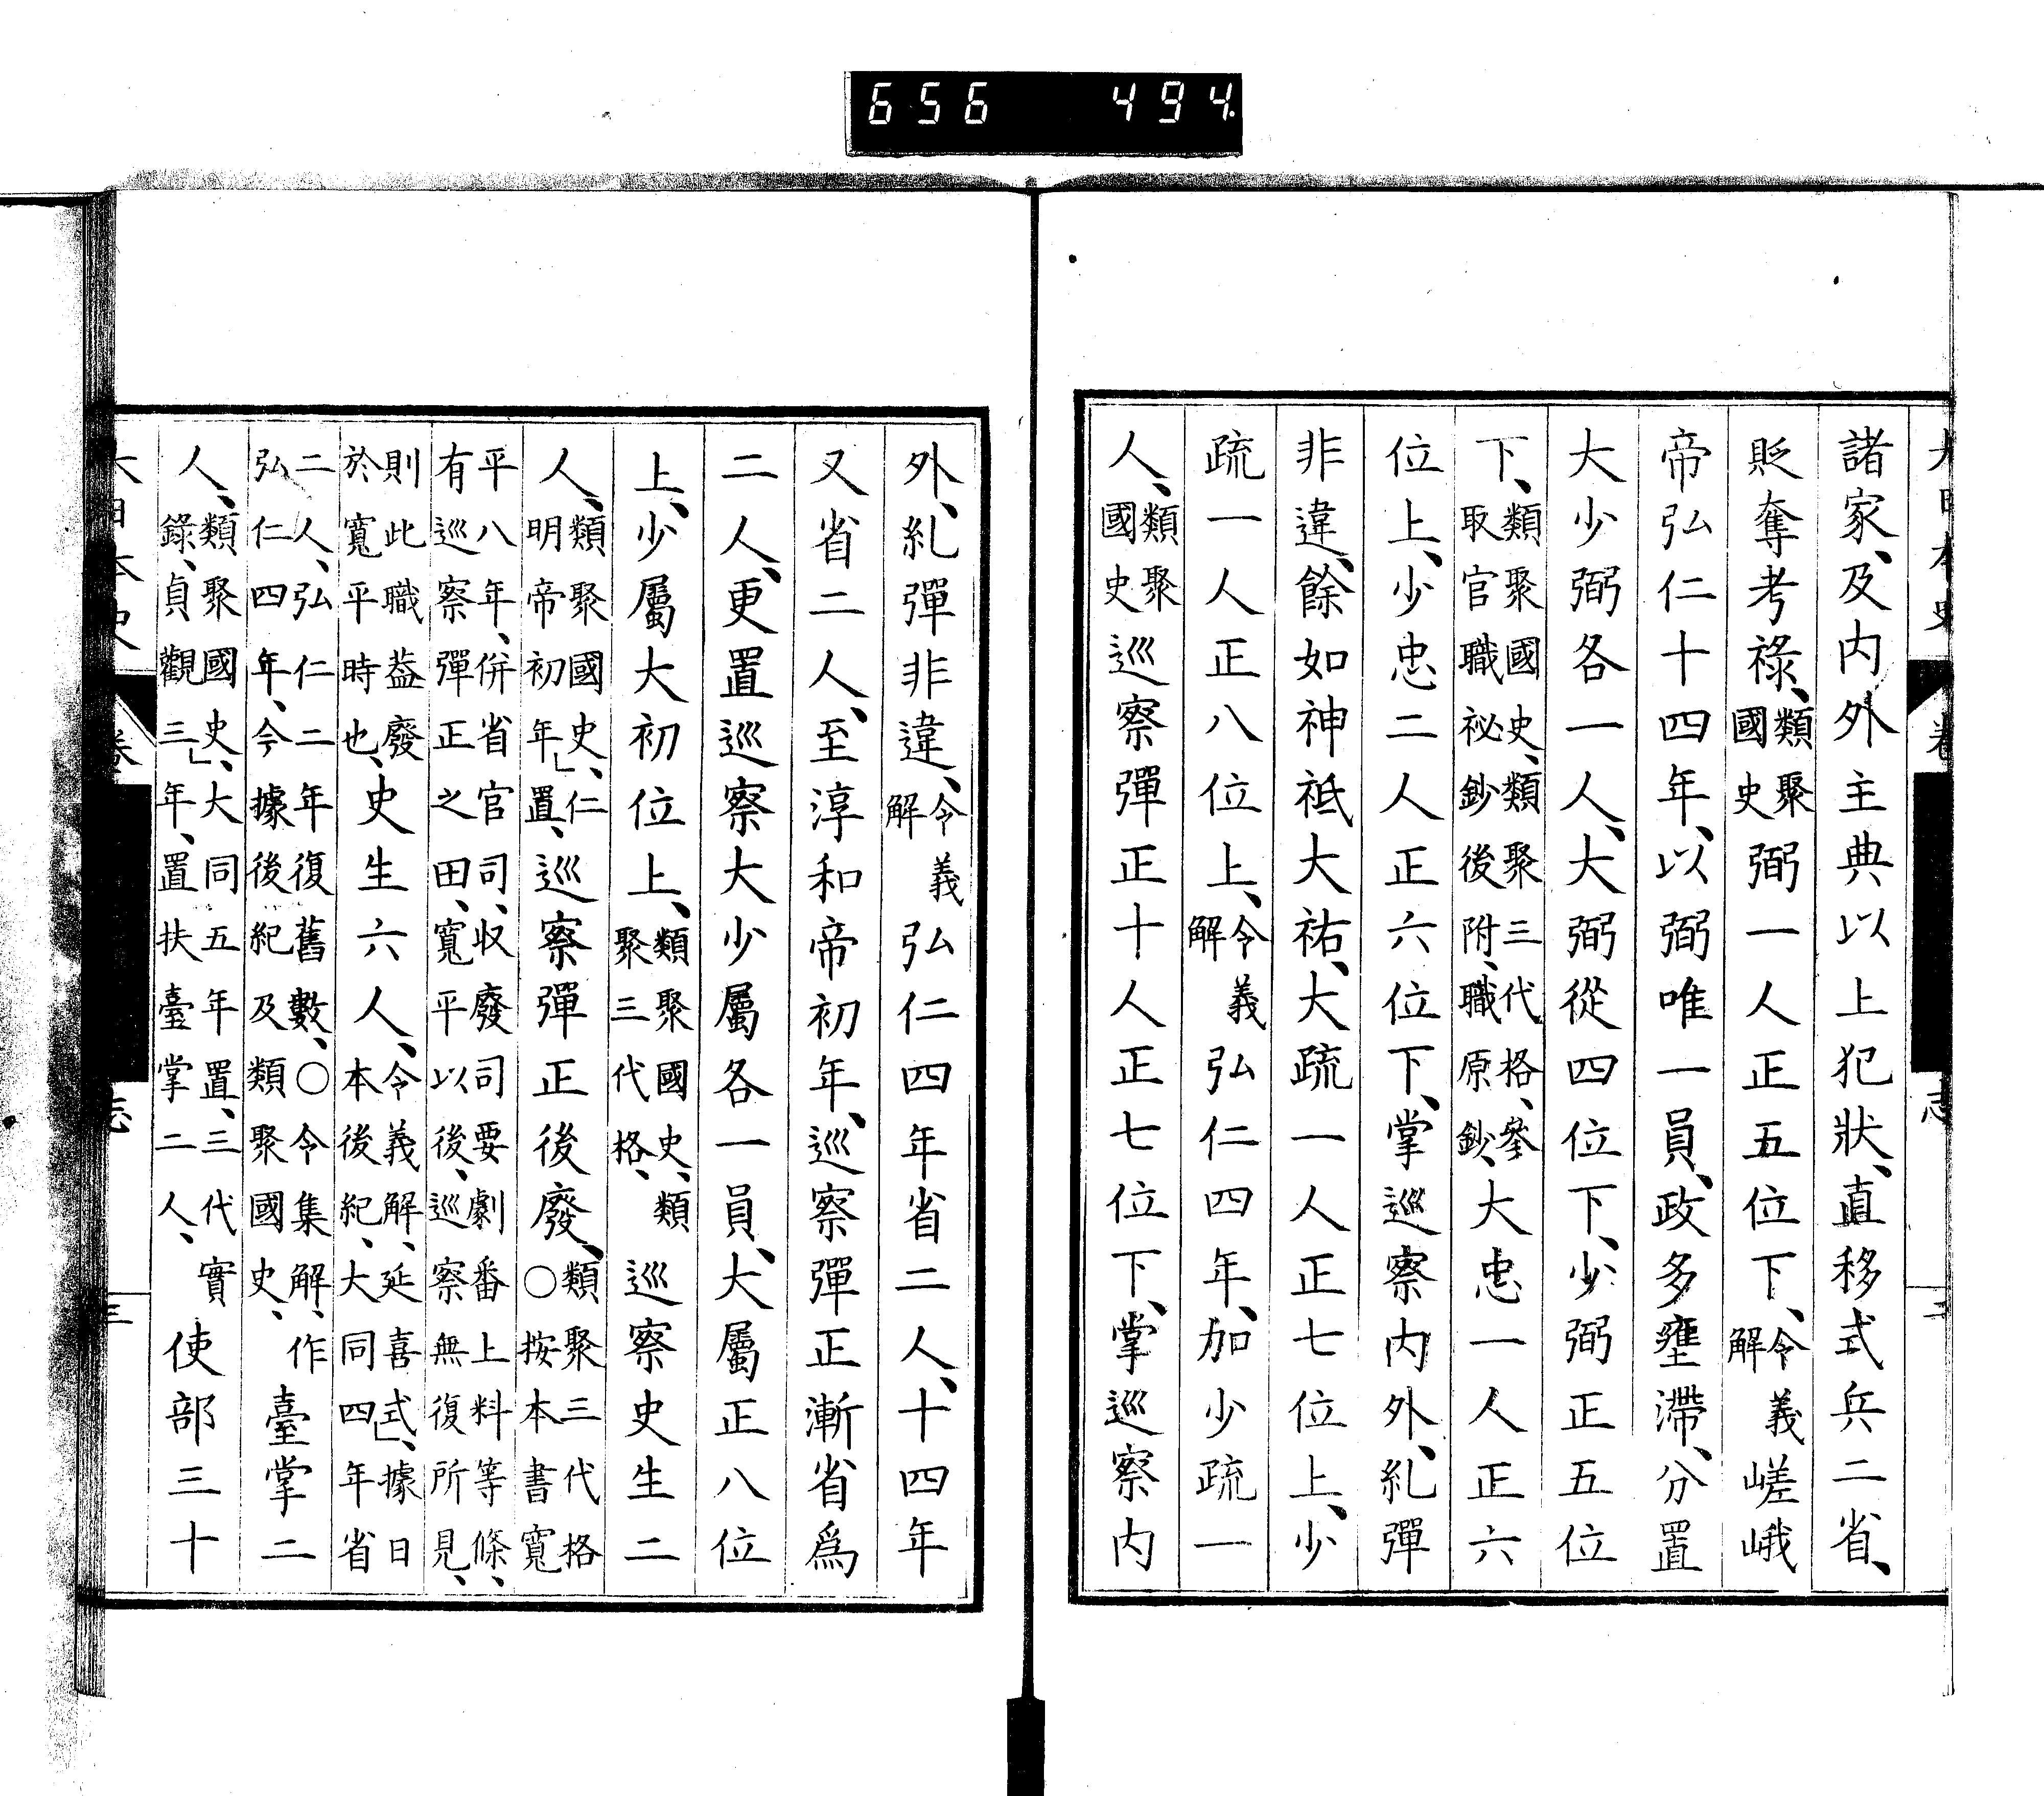 656 494
諸家、及内外主典以上犯狀、直移式兵二省、
貶奪考祿、類聚國史弼一人正五位下、令義解嵯峨
帝弘仁十四年、以弼唯一員、政多壅滯、分置
大少弼各一人、大弼從四位下、少弼正五位
下、類聚國史、類聚三代格、參取官職祕鈔後附、職原鈔、大忠一人正六
位上、少忠二人正六位下、掌巡察内外、糺彈
非違、餘如神祇大祐、大疏一人正七位上、少
疏一人正八位上、令義解弘仁四年、加少疏一
人、類聚國史巡察彈正十人正七位下、掌巡察内
外、糺彈非違、令義解弘仁四年省二人、十四年
又省二人、至淳和帝初年、巡察彈正漸省爲
二人、更置巡察大少屬各一員、大屬正八位
上、少屬大初位上、類聚國史、類聚三代格、巡察史生二
人、類聚國史、仁明帝初年置、巡察彈正後廢、類聚三代格○按本書寬
平八年、併省官司、收廢司要劇番上料等條、有巡察彈正之田、寬平以後、巡察無復所見、
則此職蓋廢於寬平時也、史生六人、令義解、延喜式、據日本後紀、大同四年省
二人、弘仁二年復舊數、○令集解、作弘仁四年、今據後紀及類聚國史、臺掌二
人、類聚國史、大同五年置、三代實錄、貞觀三年、置扶臺掌二人、使部三十
大日本史 卷 志 三